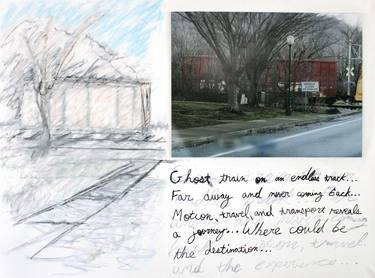 Ghost train on an endless track...
Far away and never coming back...
Motion, travel, and transport reveals
a journey... Where could be
the destination...
and the experience...